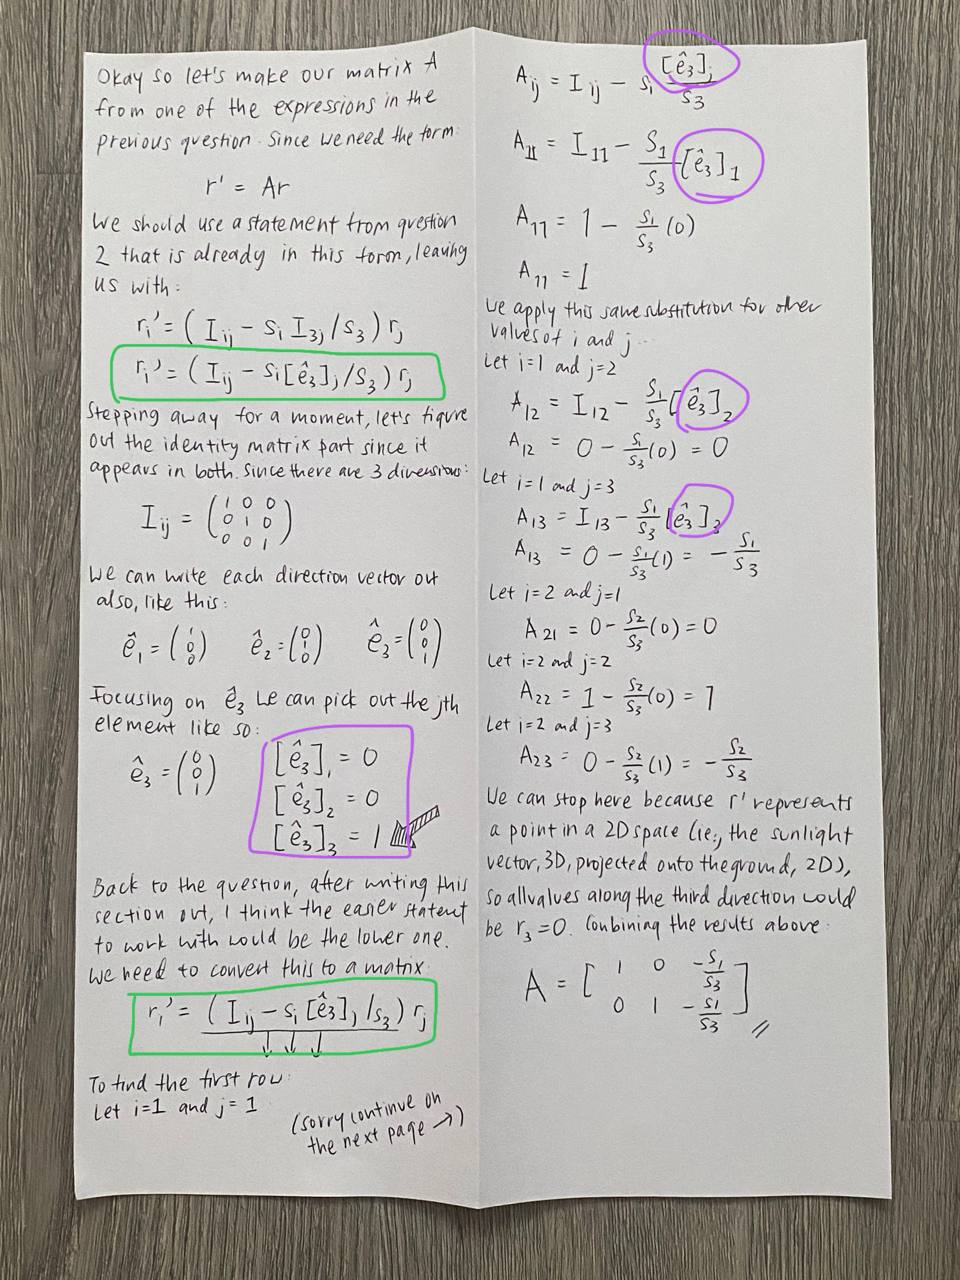 Okay so let's make our matrix A
from one of the expressions in the
previous question. Since we need the form:
r' = Ar
We should use a statement from question
2 that is already in this form, leaving
us with:
rᵢ' = (Iᵢⱼ − sᵢ I₃ⱼ / s₃) rⱼ
rᵢ' = (Iᵢⱼ − sᵢ[ê₃]ⱼ / s₃) rⱼ
Stepping away for a moment, let's figure
out the identity matrix part since it
appears in both. Since there are 3 dimensions:
Iᵢⱼ = (1 0 0
0 1 0
0 0 1)
We can write each direction vector out
also, like this:
ê₁ = (1 0 0) ê₂ = (0 1 0) ê₃ = (0 0 1)
Focusing on ê₃ we can pick out the jth
element like so:
ê₃ = (0 0 1)
[ê₃]₁ = 0
[ê₃]₂ = 0
[ê₃]₃ = 1
Back to the question, after writing this
section out, I think the easier statent
to work with would be the lower one.
We need to convert this to a matrix:
rᵢ' = (Iᵢⱼ − sᵢ [ê₃]ⱼ / s₃) rⱼ
To find the first row:
Let i=1 and j=1
(sorry continue on
the next page →)
Aᵢⱼ = Iᵢⱼ − sᵢ [ê₃]ⱼ / s₃
A₁₁ = I₁₁ − s₁/s₃ [ê₃]₁
A₁₁ = 1 − s₁/s₃ (0)
A₁₁ = 1
We apply this same substitution for other
values of i and j...
Let i=1 and j=2
A₁₂ = I₁₂ − s₁/s₃ [ê₃]₂
A₁₂ = 0 − s₁/s₃ (0) = 0
Let i=1 and j=3
A₁₃ = I₁₃ − s₁/s₃ [ê₃]₃
A₁₃ = 0 − s₁/s₃ (1) = − s₁/s₃
Let i=2 and j=1
A₂₁ = 0 − s₂/s₃ (0) = 0
Let i=2 and j=2
A₂₂ = 1 − s₂/s₃ (0) = 1
Let i=2 and j=3
A₂₃ = 0 − s₂/s₃ (1) = − s₂/s₃
We can stop here because r' represents
a point in a 2D space (ie:, the sunlight
vector, 3D, projected onto the ground, 2D),
so all values along the third direction would
be r₃ = 0. Conbining the results above:
A = [1 0 −s₁/s₃
0 1 −s₁/s₃]